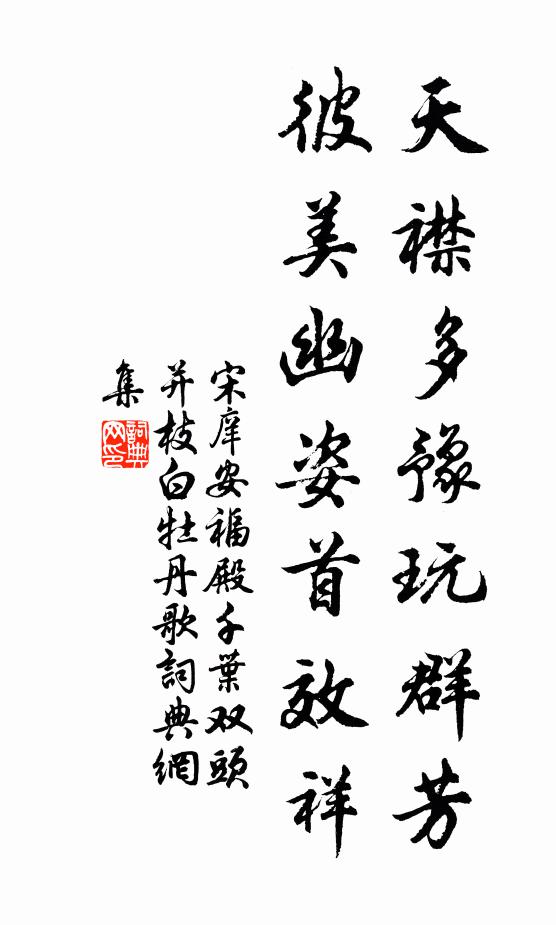 天襟多豫玩群芳
彼美幽姿首效祥
宋庠安福殿千葉双頭
并枝白牡丹歌詞典網
集
詞典
网印